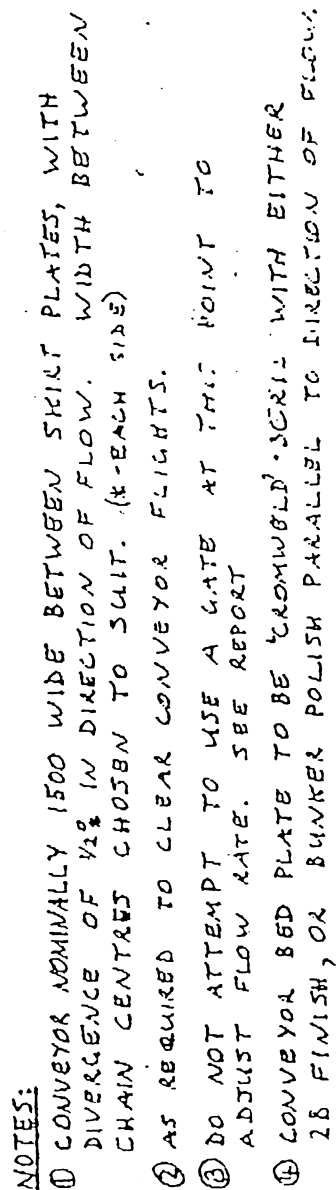 NOTES:
① CONVEYOR NOMINALLY 1500 WIDE BETWEEN SKIRT PLATES, WITH
DIVERGENCE OF ½° IN DIRECTION OF FLOW. WIDTH BETWEEN
CHAIN CENTRES CHOSEN TO SUIT. (*-EACH SIDE)
② AS REQUIRED TO CLEAR CONVEYOR FLIGHTS.
③ DO NOT ATTEMPT TO USE A GATE AT THIS POINT TO
ADJUST FLOW RATE. SEE REPORT
④ CONVEYOR BED PLATE TO BE 'CROMWELD' WITH EITHER
2B FINISH, OR BUNKER POLISH PARALLEL TO DIRECTION OF FLOW.